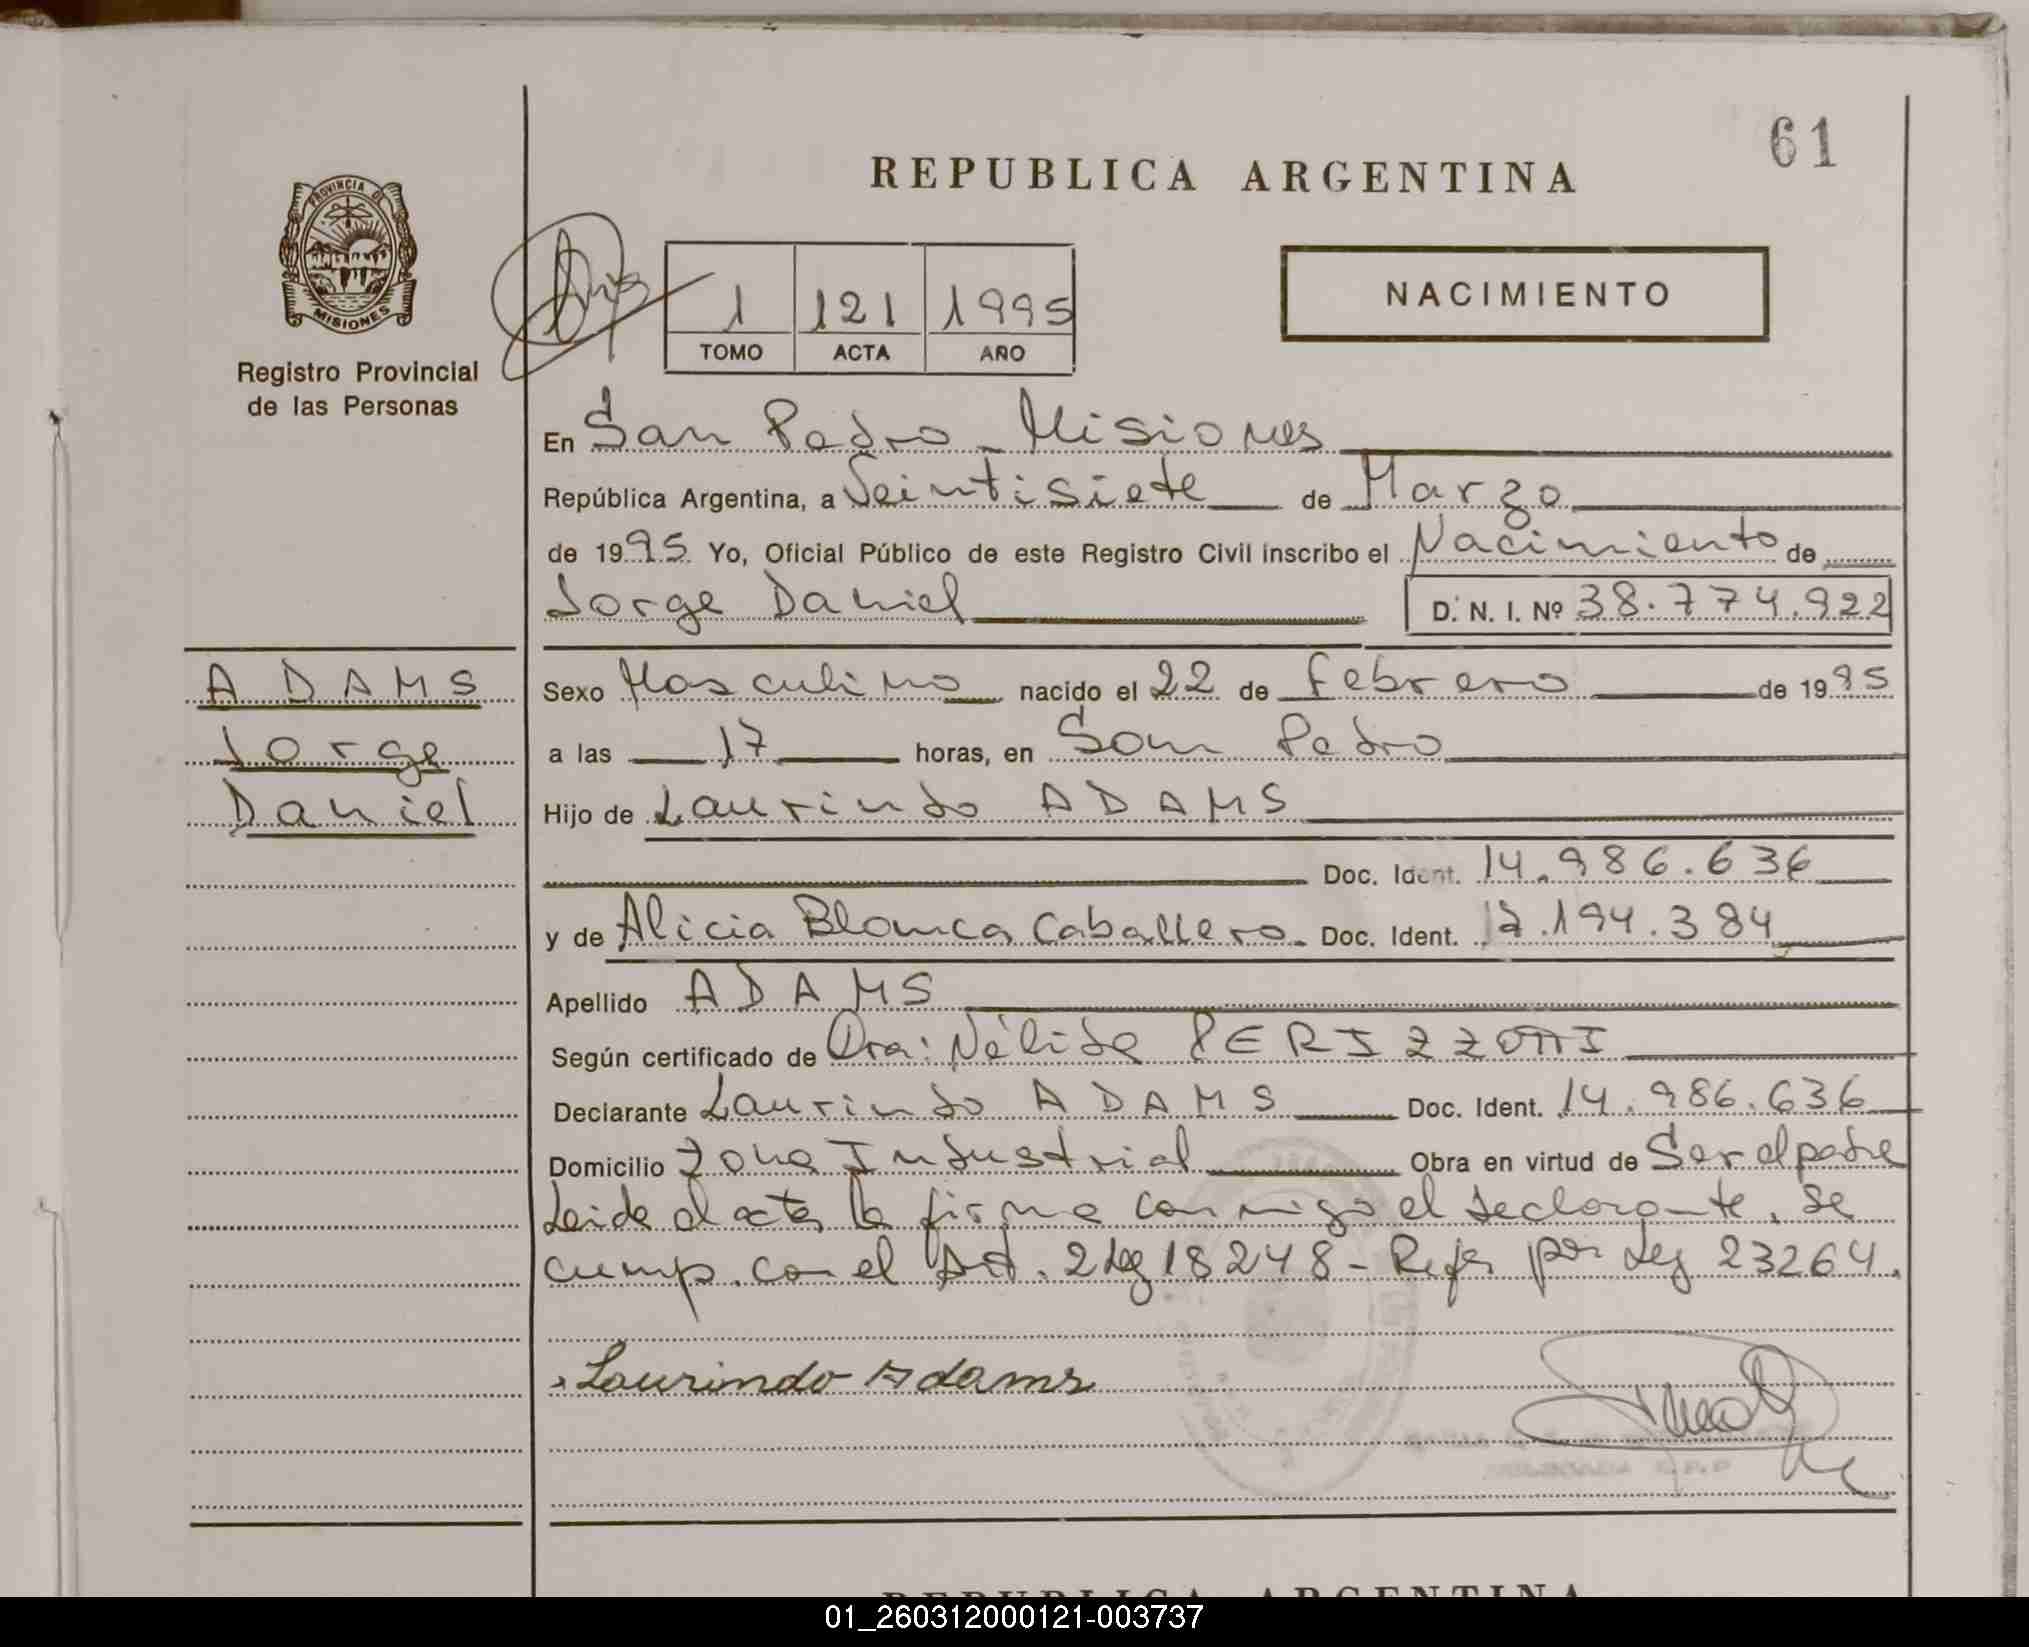 61
REPUBLICA ARGENTINA
PROVINCIA DE
MISIONES
Registro Provincial
de las Personas
1 121 1995
TOMO ACTA AÑO
NACIMIENTO
En San Pedro - Misiones
República Argentina, a Veintisiete de Marzo
de 1995 Yo, Oficial Público de este Registro Civil inscribo el Nacimiento de
Jorge Daniel D. N. I. Nº 38.774.922
ADAMS
Jorge
Daniel
Sexo Masculino nacido el 22 de Febrero de 1995
a las 17 horas, en San Pedro
Hijo de Laurindo ADAMS
Doc. Ident. 14.986.636
y de Alicia Blanca Caballero. Doc. Ident. .194.384
Apellido ADAMS
Según certificado de Dra: Nélida
Declarante Laurindo ADAMS Doc. Ident. 14.986.636
Domicilio Zona Industrial Obra en virtud de Ser el padre
Leida el acta la firma conmigo el declarante. Se
cump. con el Art. 2 Ley 18248 - Refor por Ley 23264.
Laurindo Adams
REPUBLICA ARGENTINA
01_260312000121-003737